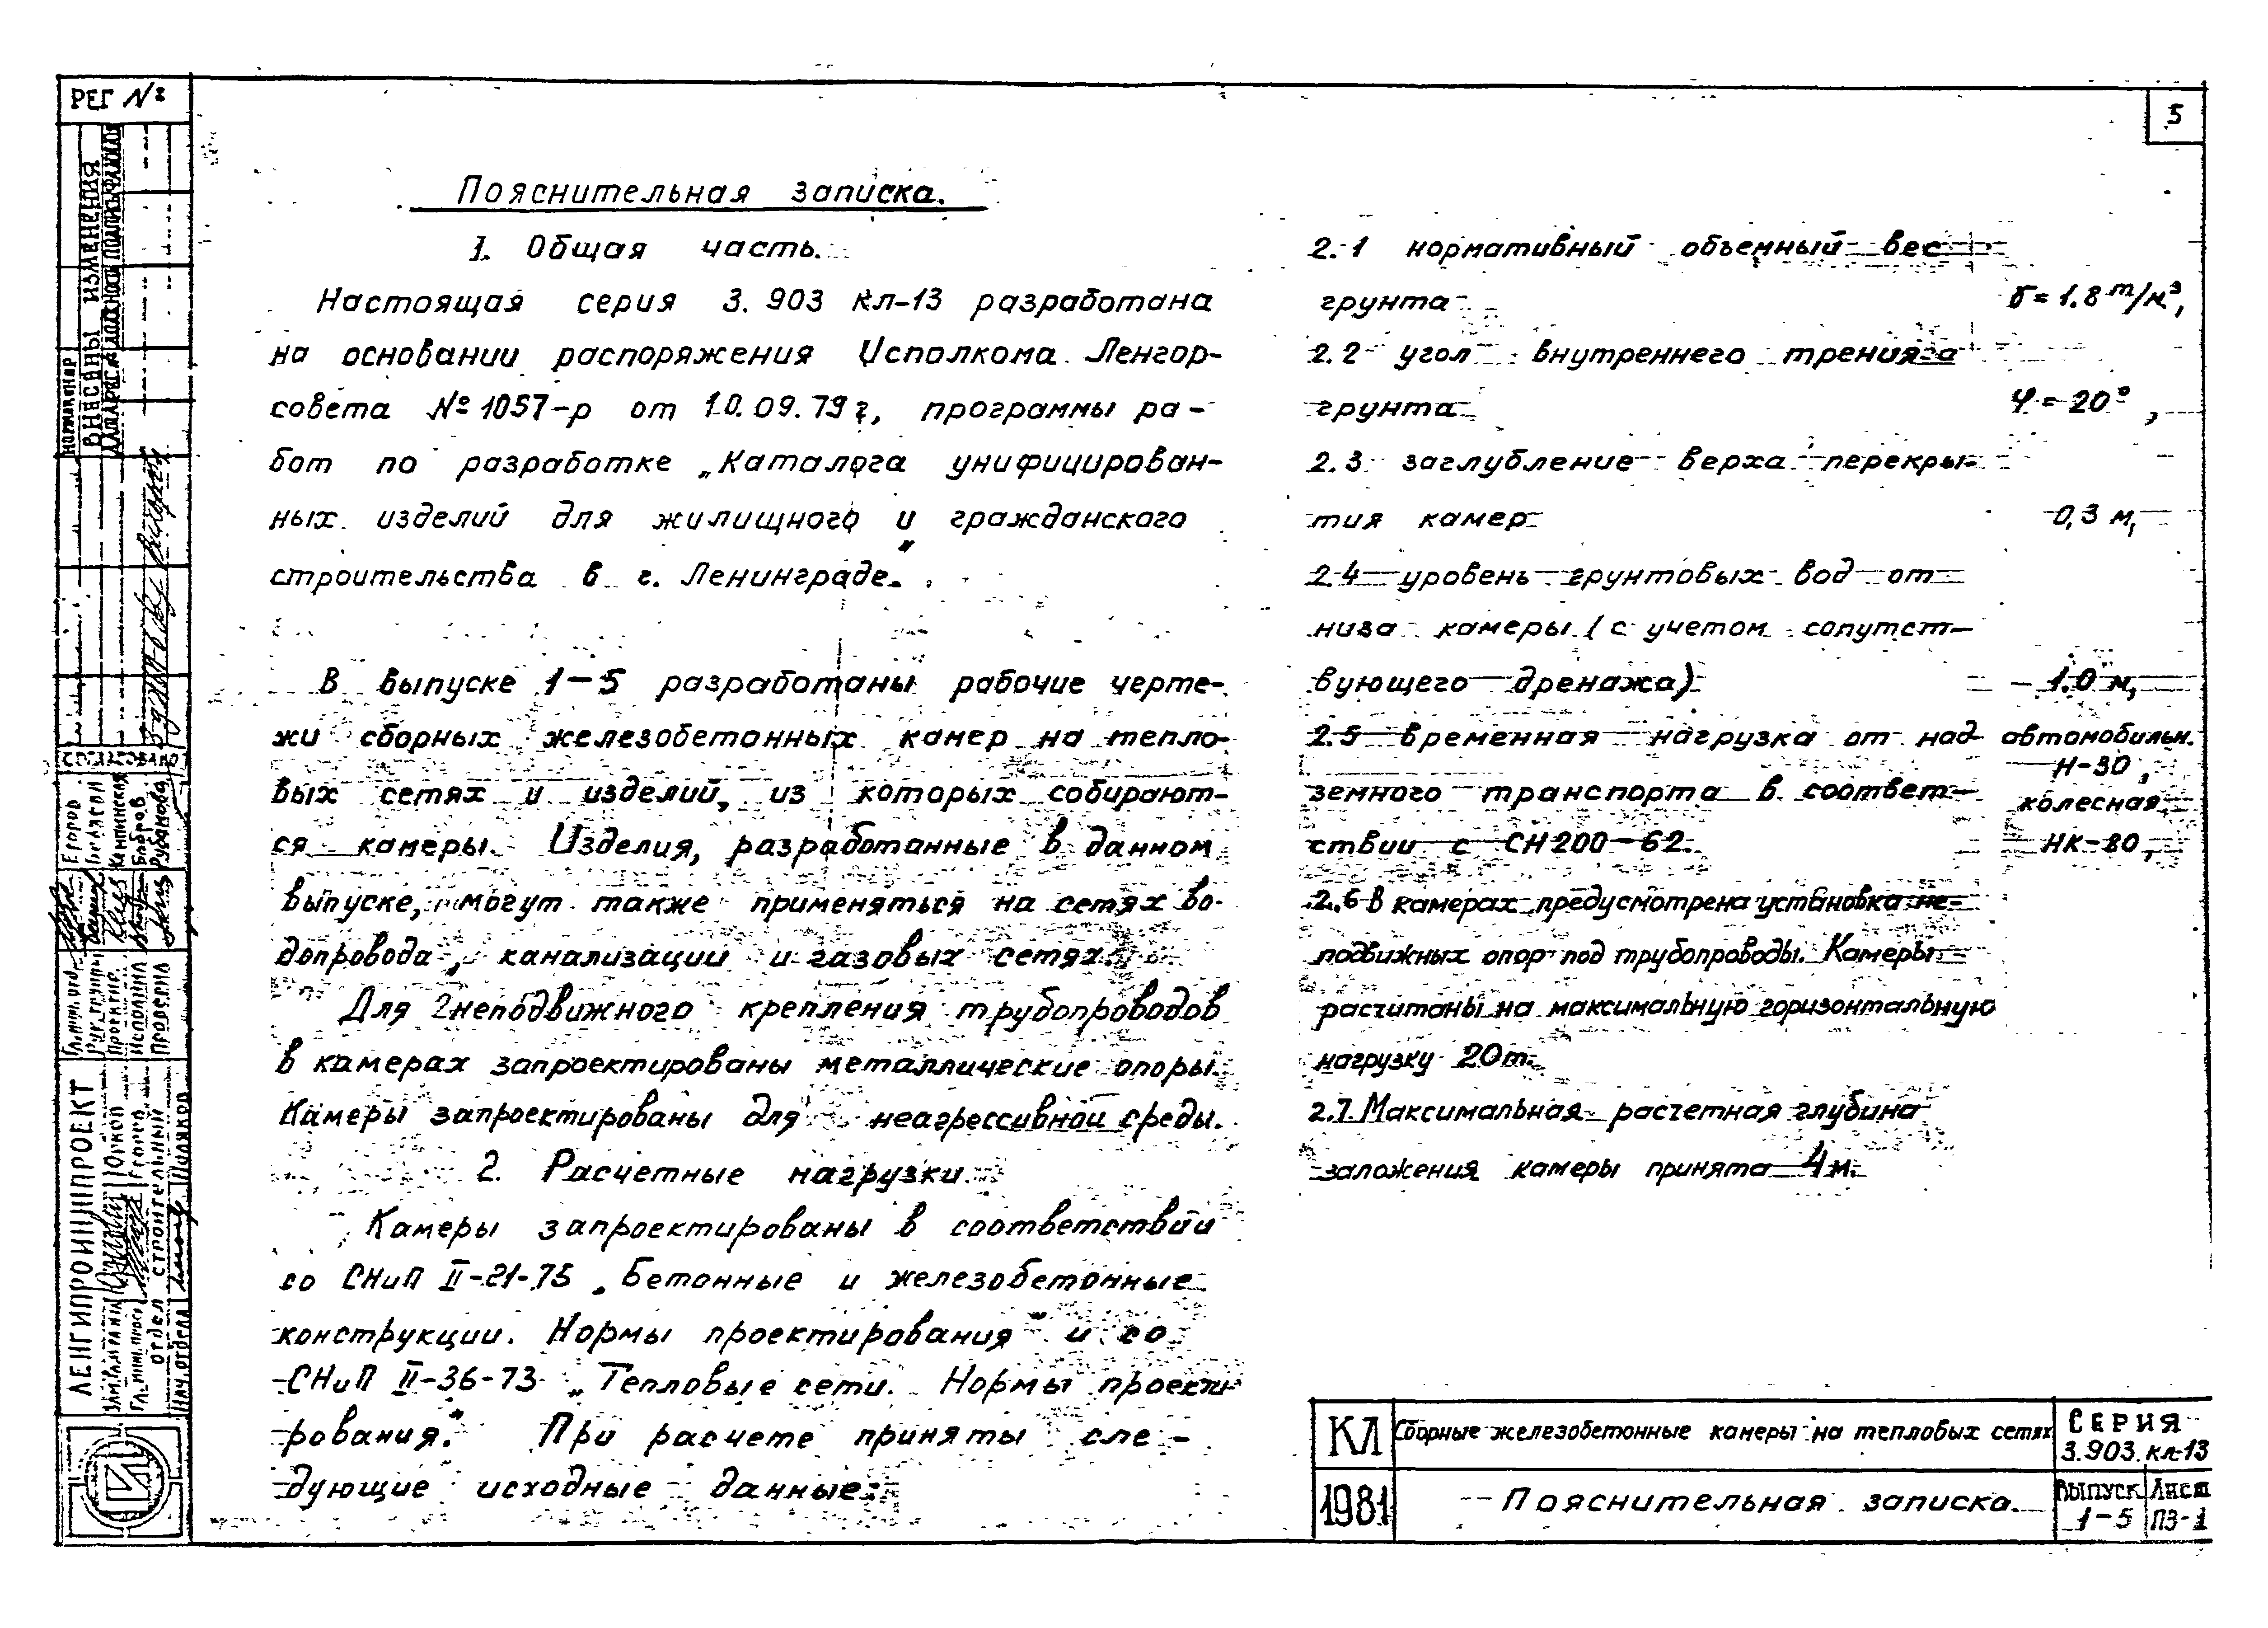 РЕГ №
5
Пояснительная записка.
1. Общая часть.
Настоящая серия 3.903 кл-13 разработана
на основании распоряжения Исполкома Ленгор-
совета № 1057-р от 10.09.79 г, программы ра-
бот по разработке „Каталога унифицирован-
ных изделий для жилищного и гражданского
строительства в г. Ленинграде."
В выпуске 1-5 разработаны рабочие черте-
жи сборных железобетонных камер на тепло-
вых сетях и изделий, из которых собирают-
ся камеры. Изделия, разработанные в данном
выпуске, могут также применяться на сетях во-
допровода, канализации и газовых сетях.
Для неподвижного крепления трубопроводов
в камерах запроектированы металлические опоры.
Камеры запроектированы для неагрессивной среды.
2. Расчетные нагрузки.
Камеры запроектированы в соответствии
со СНиП II-21-75 „Бетонные и железобетонные
конструкции. Нормы проектирования" и со
СНиП II-36-73 „Тепловые сети. Нормы проекти-
рования." При расчете приняты сле-
дующие исходные данные:
2.1 нормативный объемный вес
грунта γ = 1.8 т/м³,
2.2 угол внутреннего трения
грунта φ = 20°,
2.3 заглубление верха перекры-
тия камер 0,3 м,
2.4 уровень грунтовых вод от
низа камеры (с учетом сопутст-
вующего дренажа) 1.0 м,
2.5 временная нагрузка от над- автомобильн.
Н-30,
земного транспорта в соответ- колесная
ствии с СН 200-62. НК-80,
2.6 В камерах предусмотрена установка не-
подвижных опор под трубопроводы. Камеры
расчитаны на максимальную горизонтальную
нагрузку 20т.
2.7. Максимальная расчетная глубина
заложения камеры принята 4м.
КЛ Сборные железобетонные камеры на тепловых сетях СЕРИЯ
3.903 кл-13
1981 Пояснительная записка. Выпуск 1-5 Лист ПЗ-1
ВНЕСЕНЫ ИЗМЕНЕНИЯ
НОРМАКОНТР
СОГЛАСОВАНО
Егоров
Каплинская
Бобров
Русанова
Рук. группы
Исполнил
Проверил
ЛЕНГИПРОИНЖПРОЕКТ
Юрков
Егоров
отдел строительный
Нач. отдела Поляков